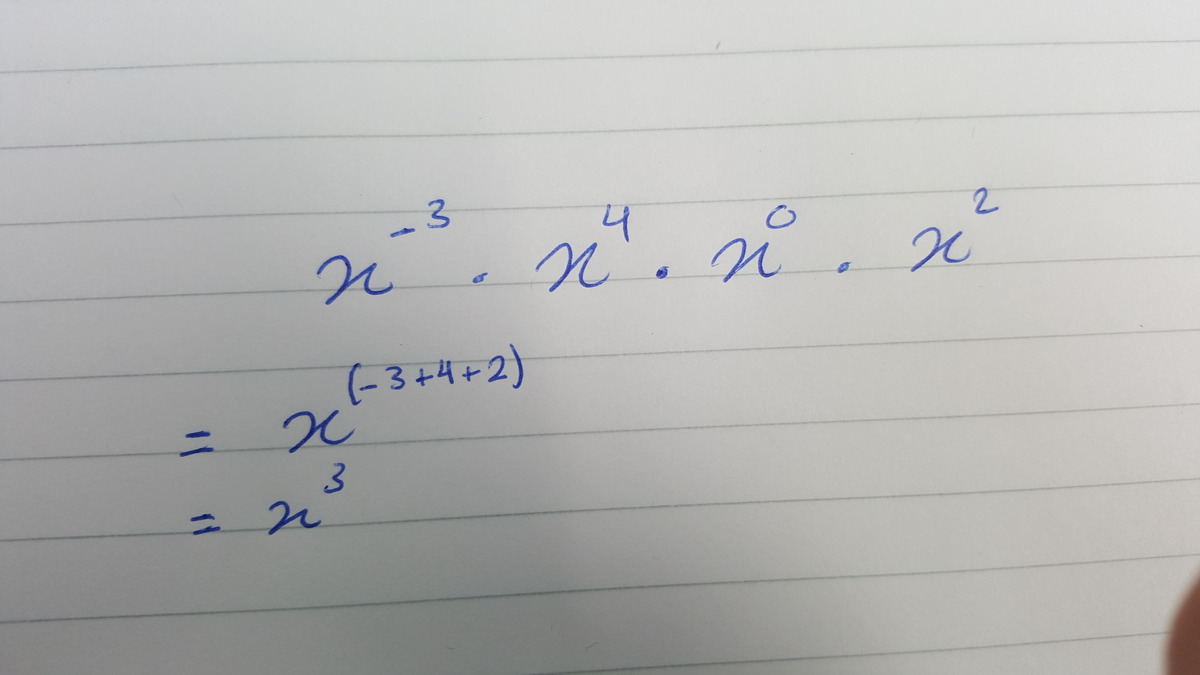 x⁻³ . x⁴ . x⁰ . x²
= x⁽⁻³⁺⁴⁺²⁾
= x³